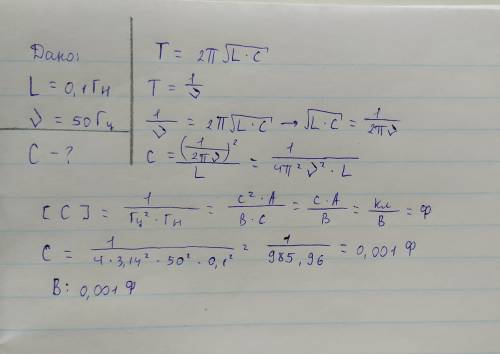 Дано:
L = 0,1 Гн
ν = 50 Гц
C - ?
T = 2π√(L·C)
T = 1/ν
1/ν = 2π√(L·C) → √(L·C) = 1/(2πν)
C = (1/(2πν))²/L = 1/(4π²ν²·L)
[C] = 1/(Гц²·Гн) = (с²·А)/(В·с) = (с·А)/В = Кл/В = Ф
C = 1/(4·3,14²·50²·0,1²) = 1/985,96 = 0,001 Ф
В: 0,001 Ф